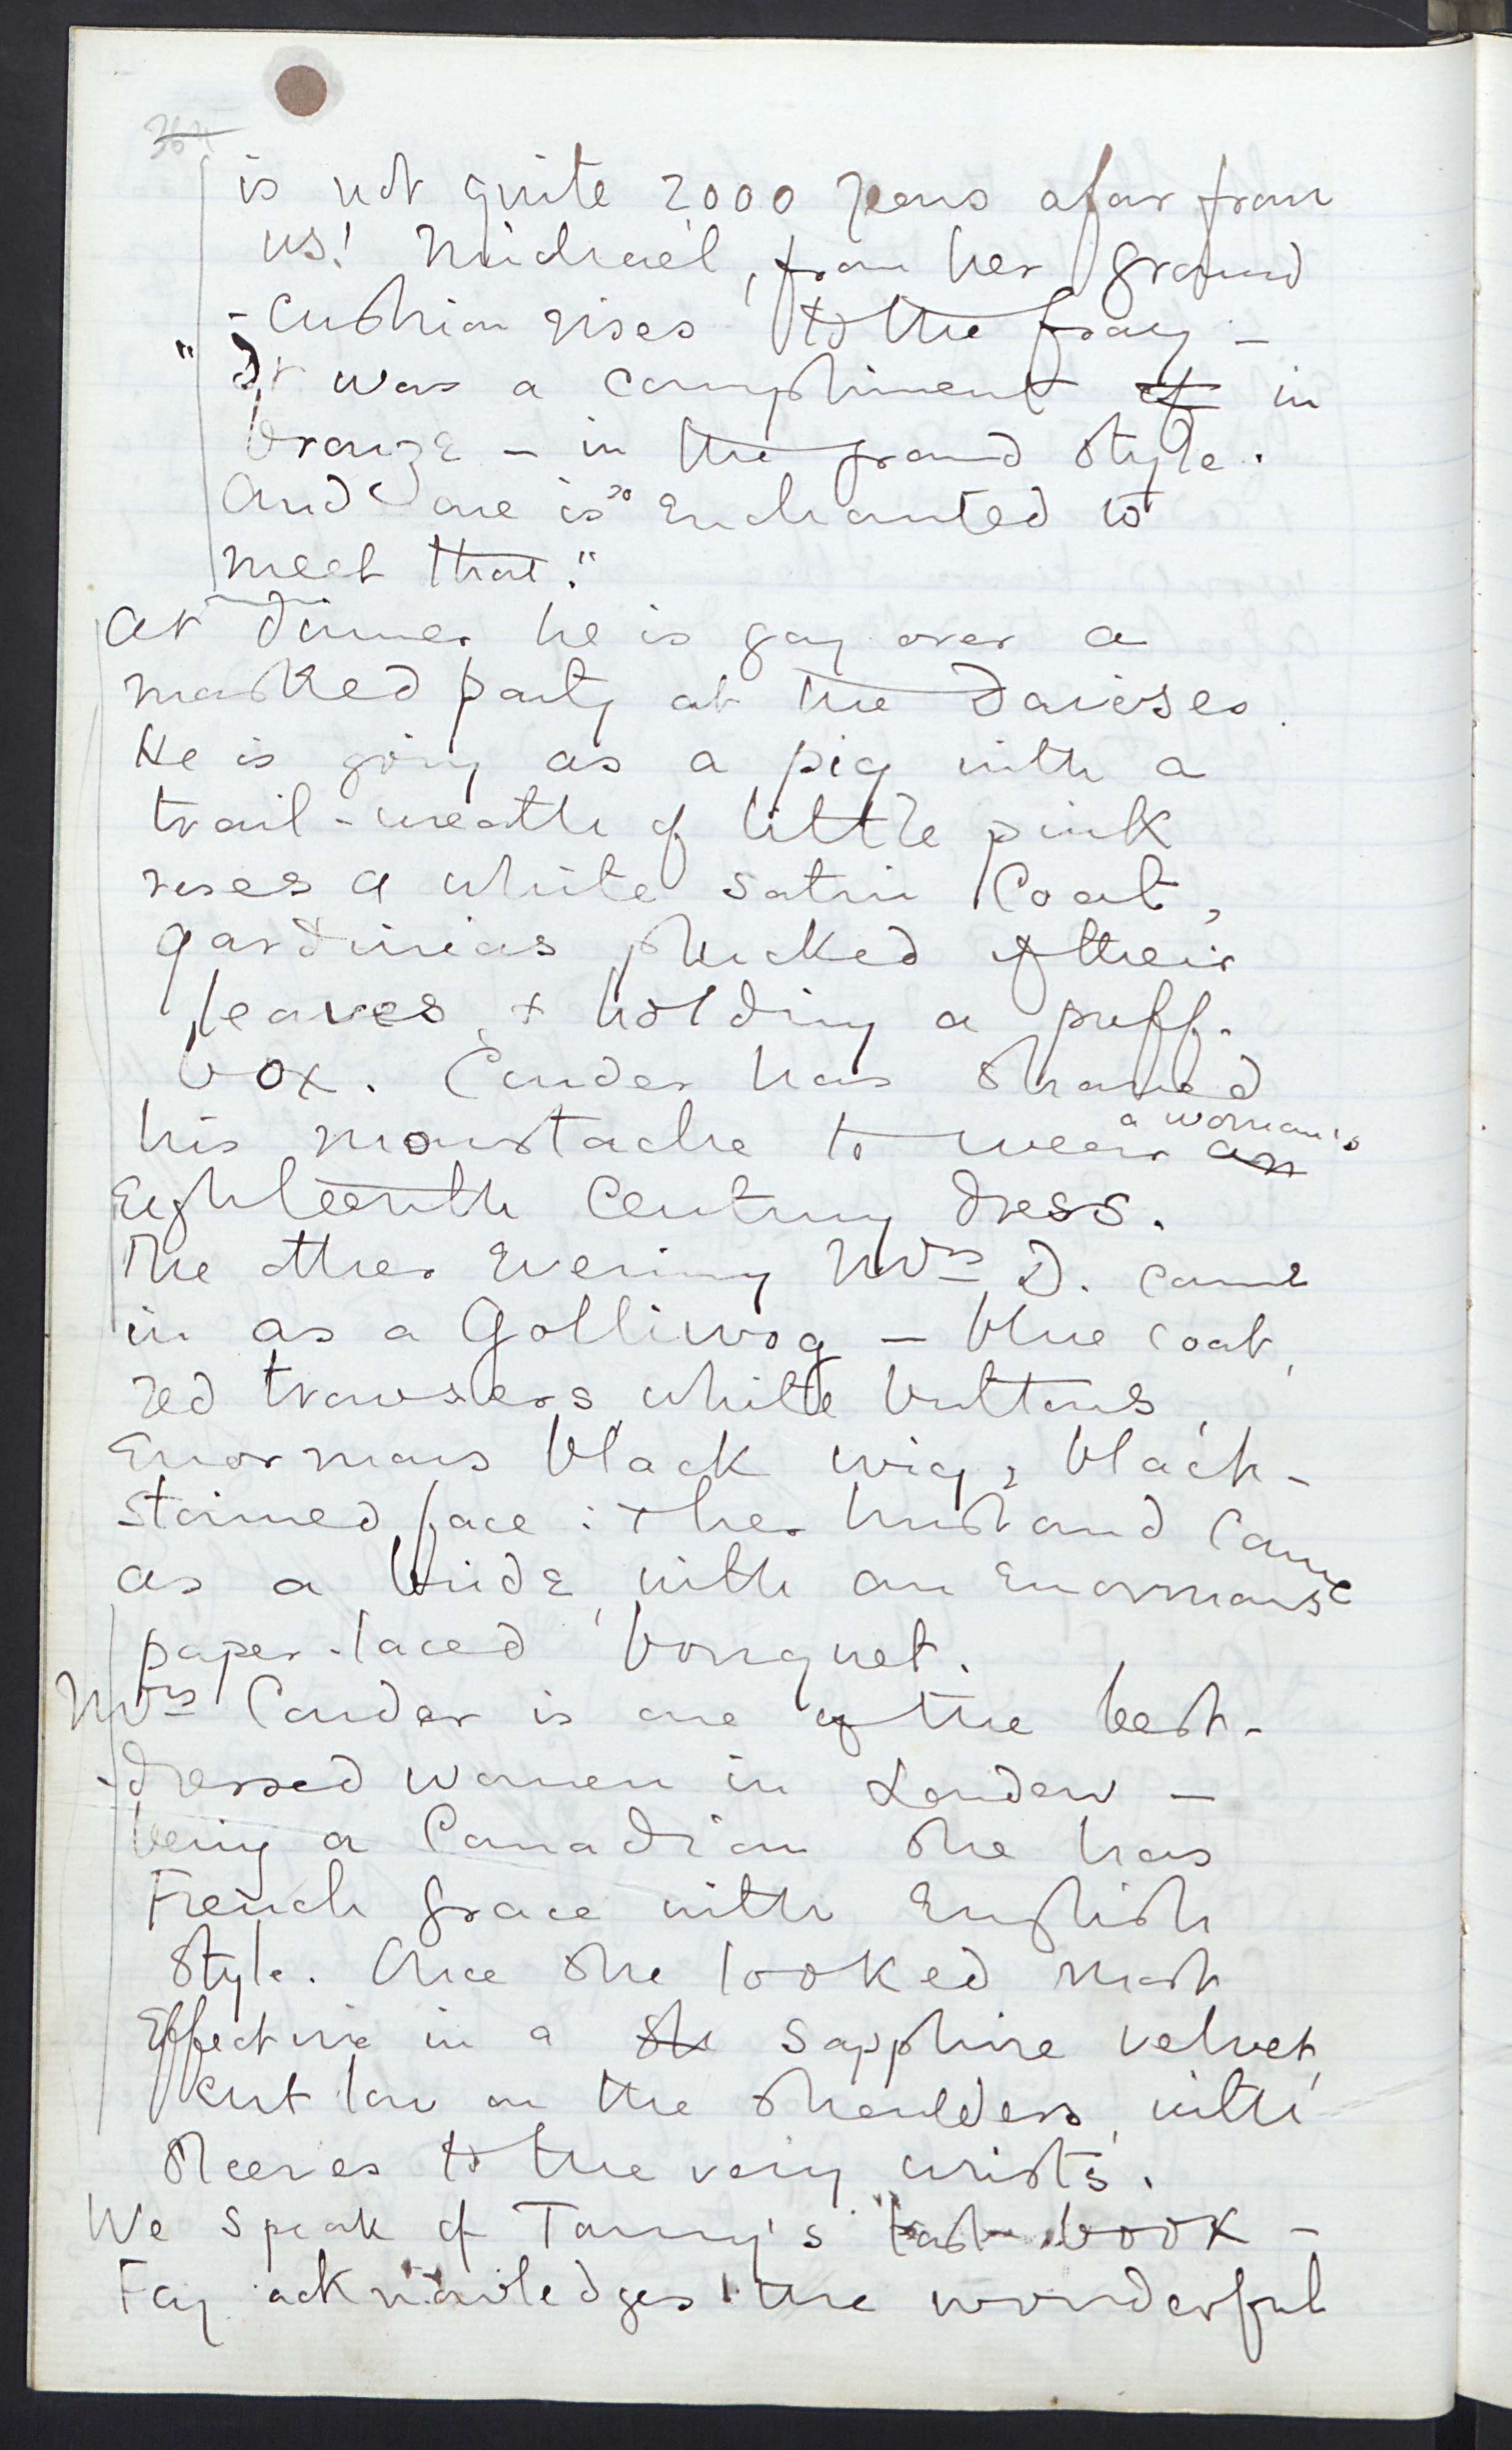 is not quite 2000 years afar from
us! Michael, from her ground
-cushion rises to the fray —
"It was a compliment of in
bronze — in the grand style.
And one is so enchanted to
meet that."
At dinner he is gay over a
masked party at the Davises.
He is going as a pig with a
trail-wreath of little pink
roses a white satin Coat,
gardinias plucked of their
leaves, & holding a puff-
box. Conder has shaved
a woman's
his moustache to wear an
Eighteenth Century dress.
The other Evening Mrs D. came
in as a Golliwog — blue coat,
red trowsers white buttons,
Enormous black wig, black-
stained face: & her husband came
as a bride, with an Enormous
paper-laced bouquet.
Mrs Conder is one of the best-
-dressed women in London —
being a Canadian she has
French grace with English
style. Once she looked most
Effective in a sh sapphire velvet,
cut low on the shoulders, with
sleeves to the very wrists.
We speak of Tommy's last book —
Fay acknowledges the wonderful